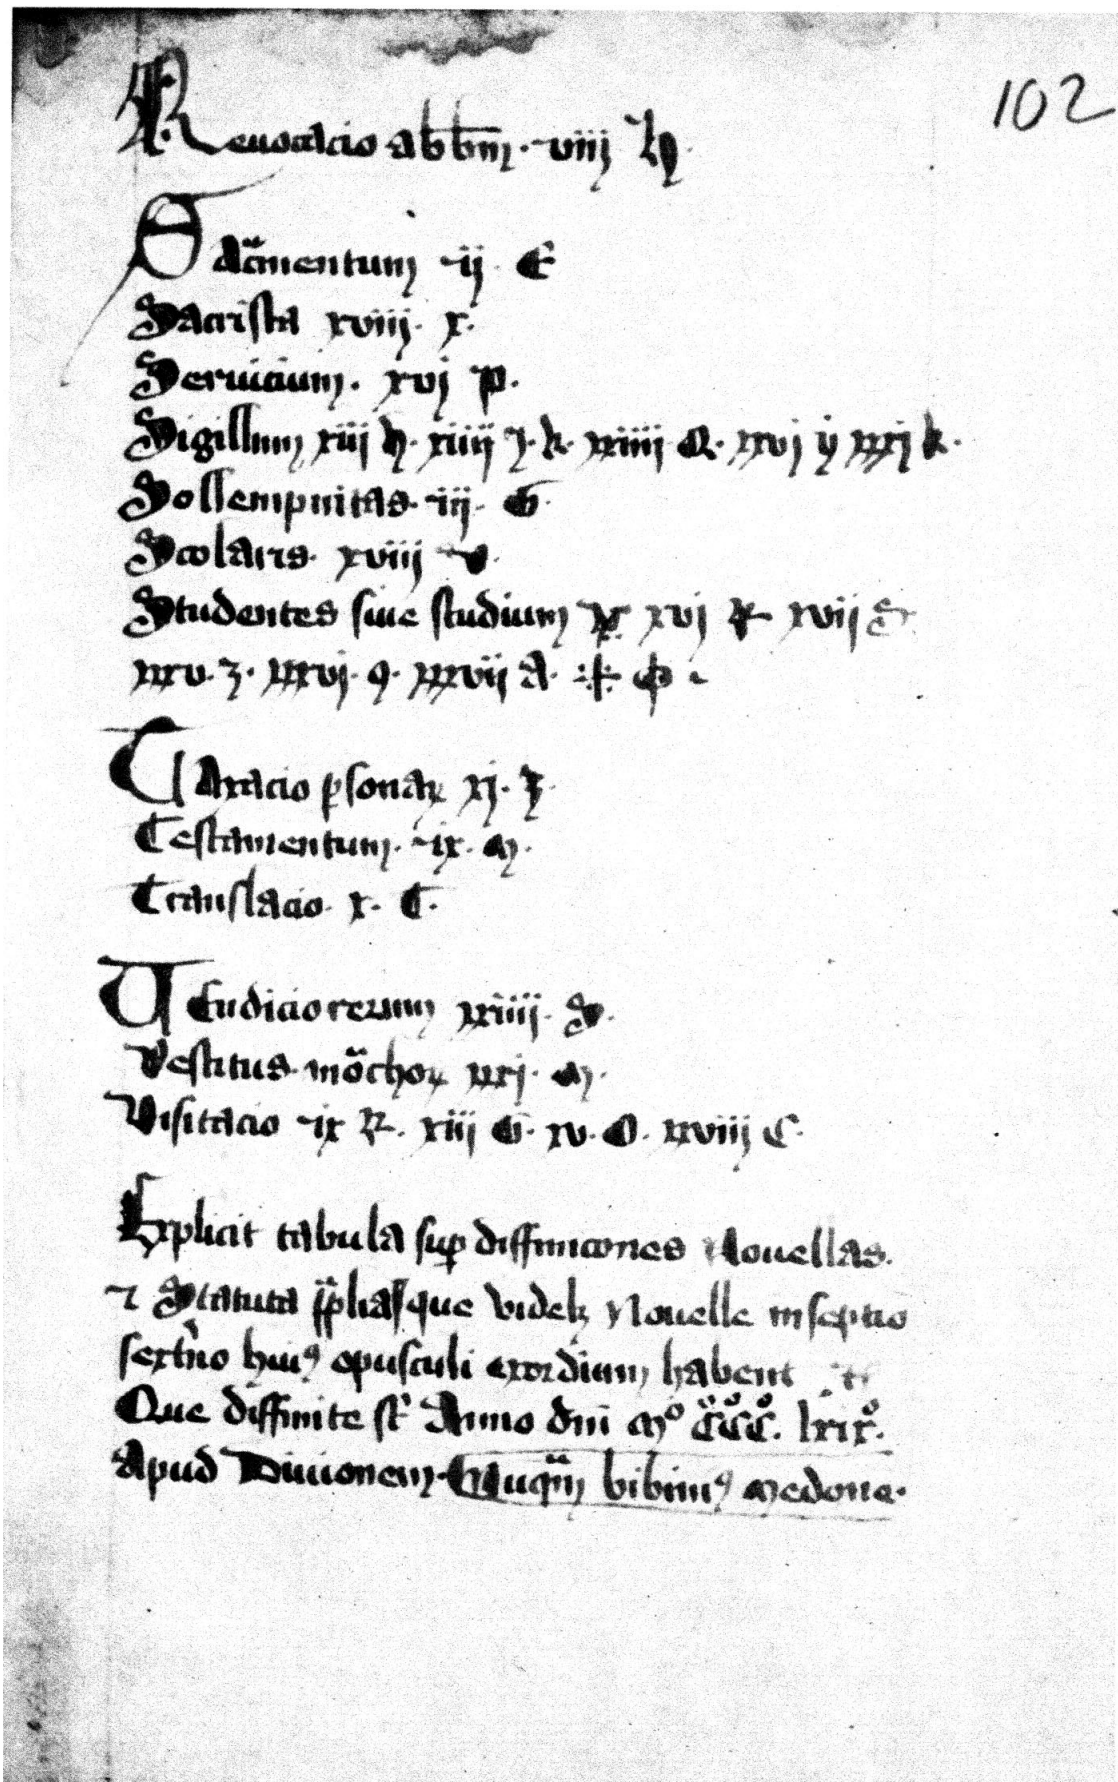 102
Reuocacio abbm. viii h
Sacmentum ii. E
Sacrista xviii. x.
Seruicium. xvi p.
Sigillum xiii h. xiiii j. k. xxiiii Q. xxvi y xxxi k.
Sollempnitas. iii. G.
Scolaris. xviii v.
Studentes siue studium xvi R xvii S
xxxv. z. xxxvi. 9. xxxvii A.
Taxacio psonaꝝ xi. z.
Testamentum. ix. m.
Translacio. x. C.
Vendicio rerum xxiiii. S.
Vestitus. mochoꝝ xxi. m.
Visitacio ix R. xiii G. xv. O. xxviii C.
Explicit tabula sup diffinicones Nouellas.
⁊ Statuta pphasque videlꝫ Nouelle in septio
sextno huiꝰ opusculi exordium habent
Que diffinite st Anno dni mº CCC. lxixº.
apud Diuionem. Nuqm bibimꝰ medone.